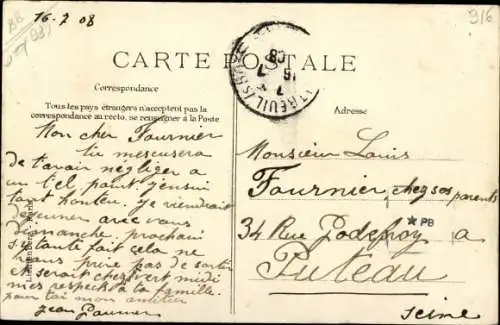 16-2 08
916
CARTE POSTALE
Correspondance
Tous les pays étrangers n'acceptent pas la
correspondance au recto, se renseigner à la Poste
Adresse
Mon cher Fournier
tu mescusera
de t'avoir négliger a
un tel point j'ensui
tant honteu. je viendrait
dejeuner avec vous
dimanche prochai
si tante fait cela ne
vous prive pas de sortir
et serait chez vert midi
mes respects a ta famille
pour toi mon amitier
Jean
Monsieur Louis
Fournier chez ses parents
34 Rue Godefroy a
*PB
Puteau
Seine